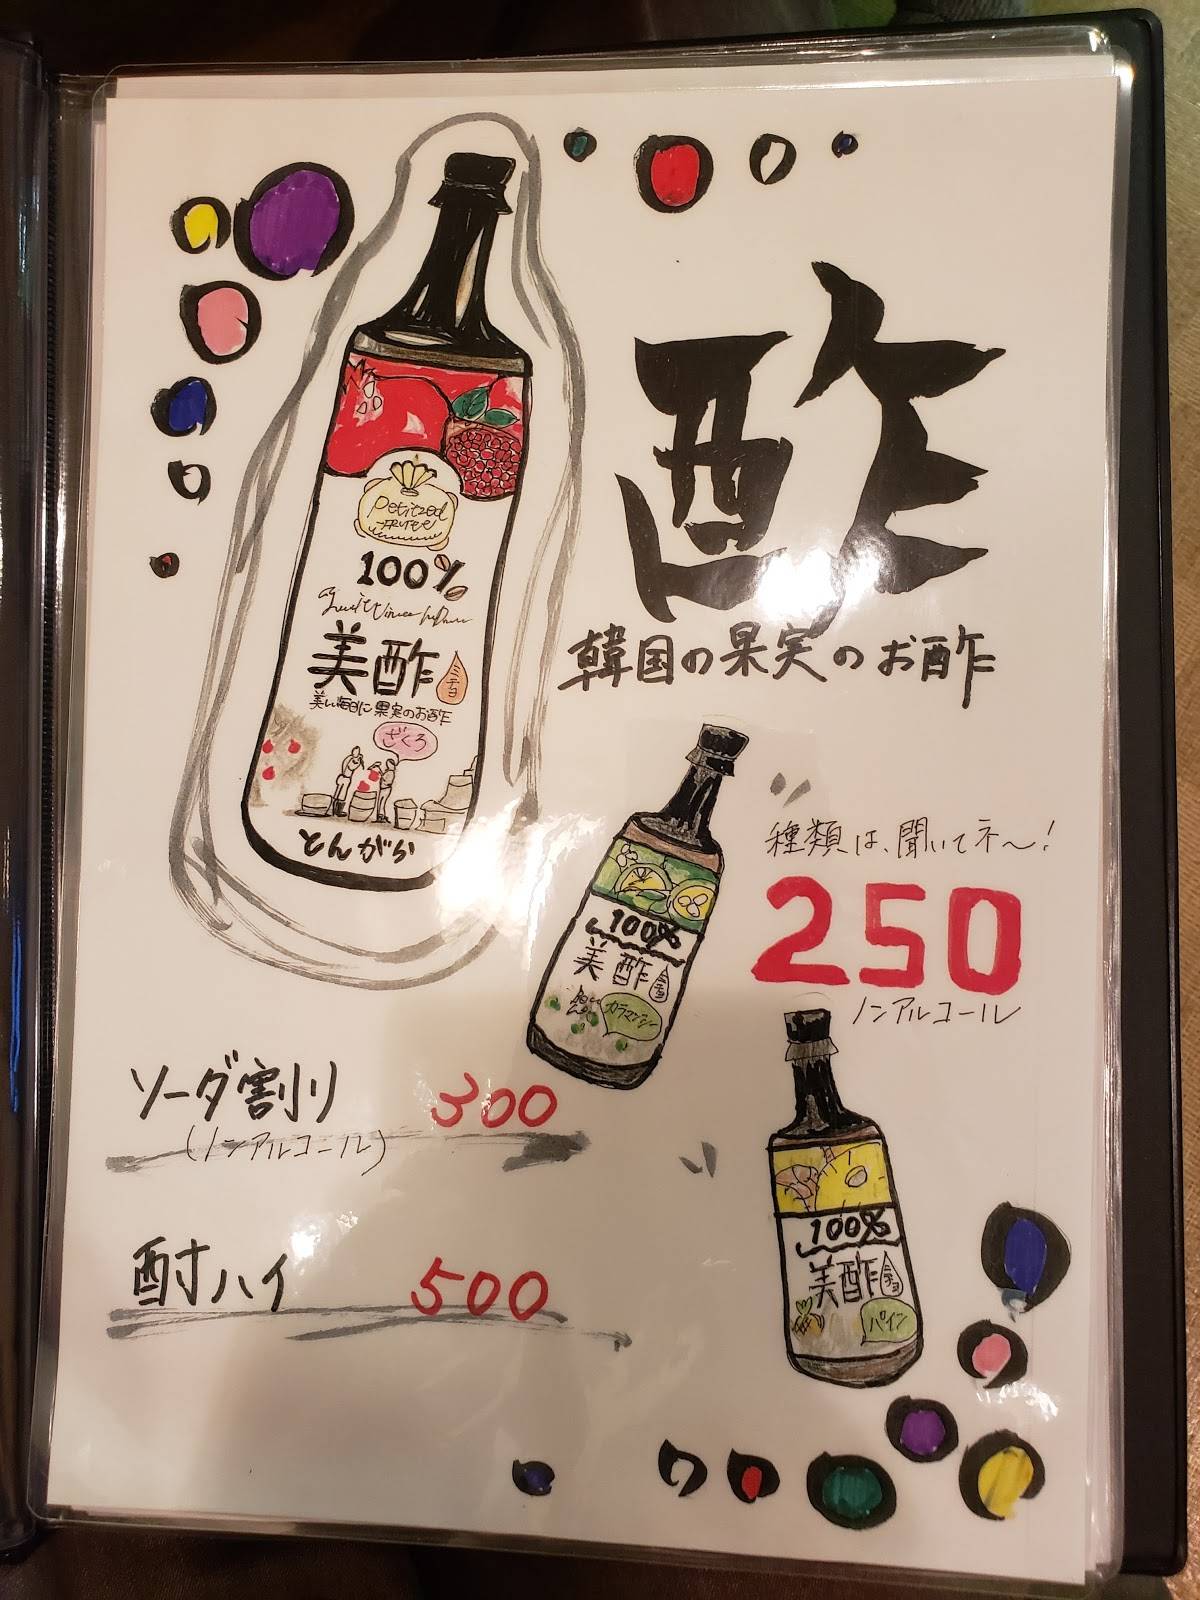 酢
韓国の果実のお酢
Petitzel
100%
美酢
ミチョ
美しい毎日に果実のお酢
ざくろ
とんがらい
種類は、聞いてネ〜!
250
ノンアルコール
100%
美酢
ミチョ
カラマンシー
ソーダ割り 300
(ノンアルコール)
酎ハイ 500
100%
美酢
ミチョ
パイン